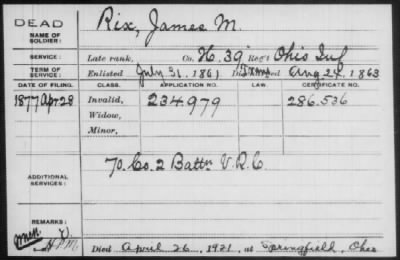 DEAD
NAME OF SOLDIER: Rix, James M.
SERVICE: Late rank, Co. H. 39 Reg't Ohio Inf
TERM OF SERVICE: Enlisted July 31, 1861 Trans Aug 24, 1863
DATE OF FILING. CLASS. APPLICATION NO. LAW. CERTIFICATE NO.
1877 Apr 28 Invalid, 234979 286.536
Widow,
Minor,
ADDITIONAL SERVICES: 70. Co. 2 Battn V.R.C.
REMARKS:
Died April 26, 1921, at Springfield, Ohio